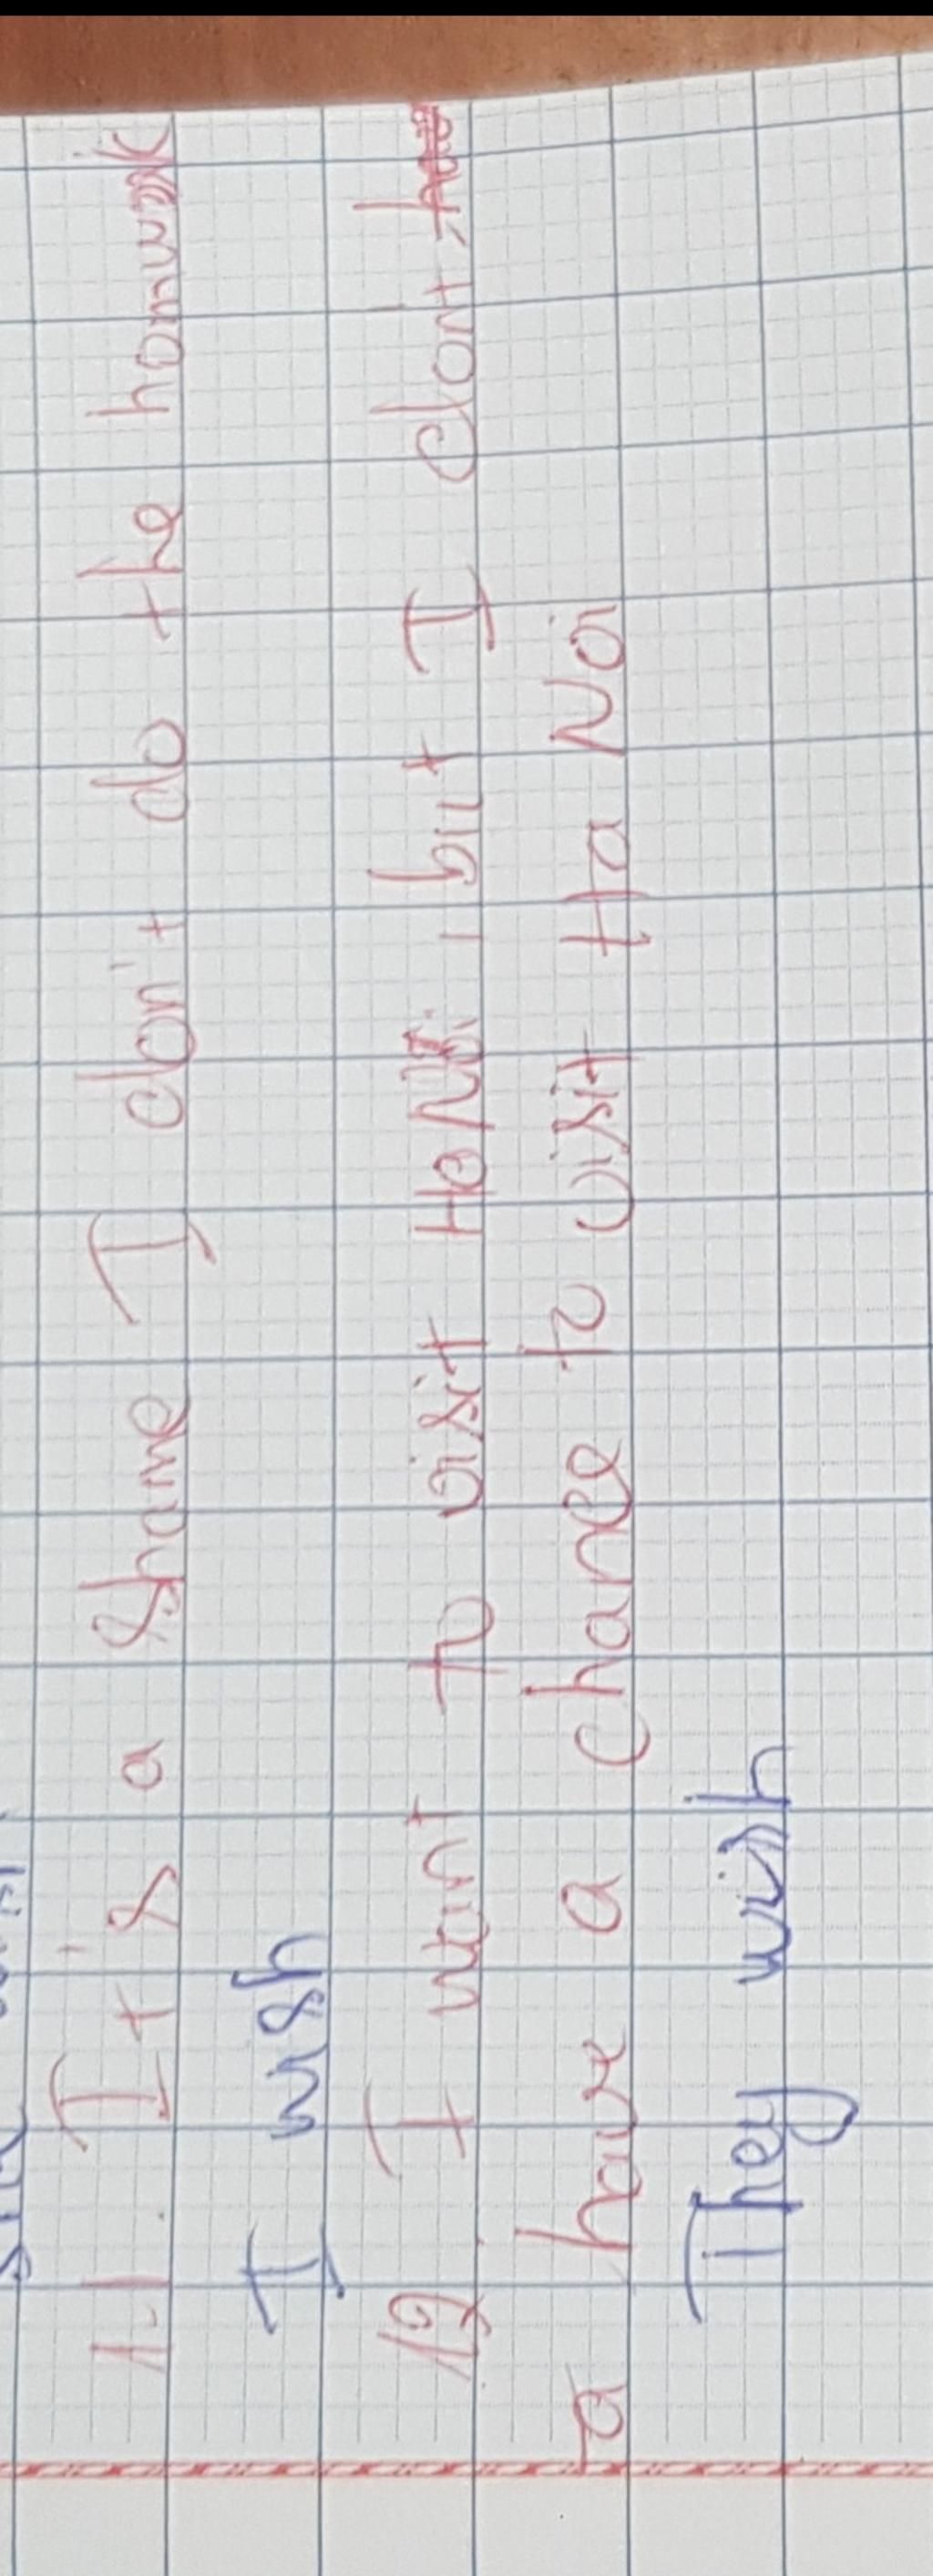 11. It's a shame I don't do the homwork
I wish
12. I want to visit Ha Nội, but I dont
a have a chance to visit Ha Nơi
They wish